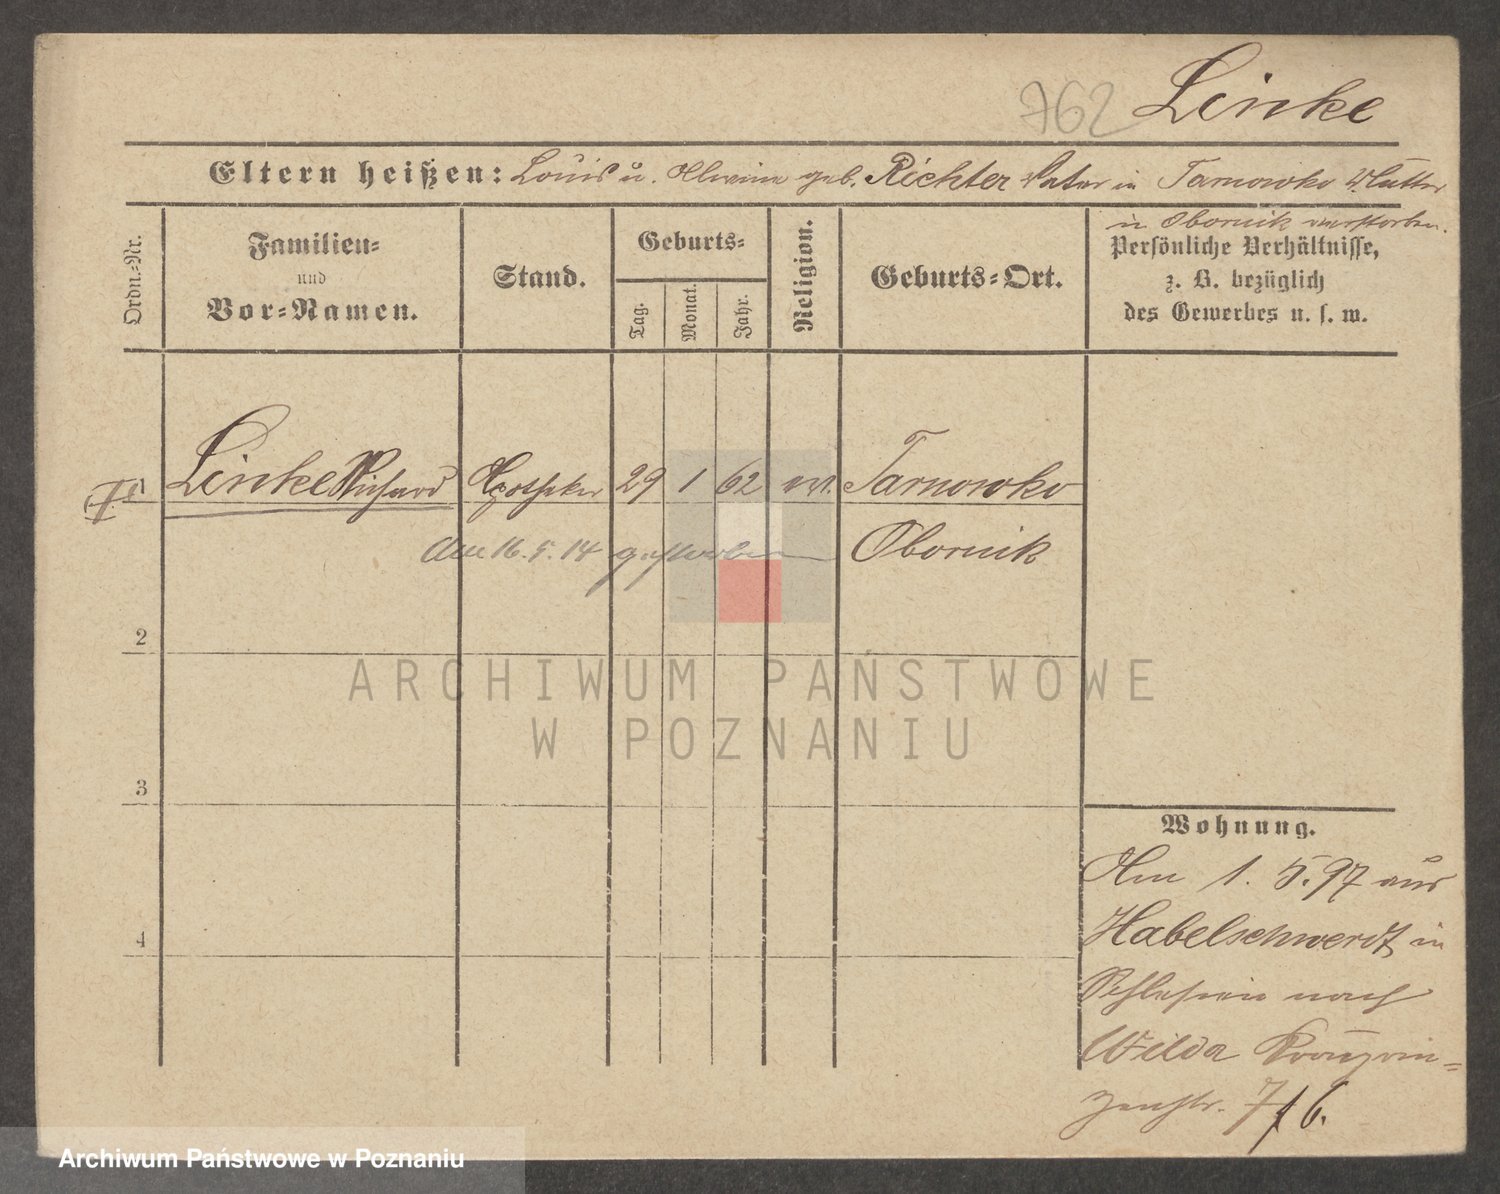 762 Linke
Eltern heißen: Louis u. Alwine geb. Richter Vater in Tarnowko Mutter
in Obornik verstorben.
Ordn.-Nr.
Familien-
und
Vor-Namen.
Stand.
Geburts-
Tag.
Monat.
Jahr.
Religion.
Geburts-Ort.
Persönliche Verhältnisse,
z. B. bezüglich
des Gewerbes u. s. w.
1 Linke Richard Apotheker 29 1 62 ev. Tarnowko
Am 16.5.14 gestorben Obornik
2
ARCHIWUM PAŃSTWOWE
W POZNANIU
3
4
Wohnung.
Am 1. 5. 97 aus
Habelschwerdt in
Schlesien nach
Wilda Kronprin-
zenstr. 6.
Archiwum Państwowe w Poznaniu